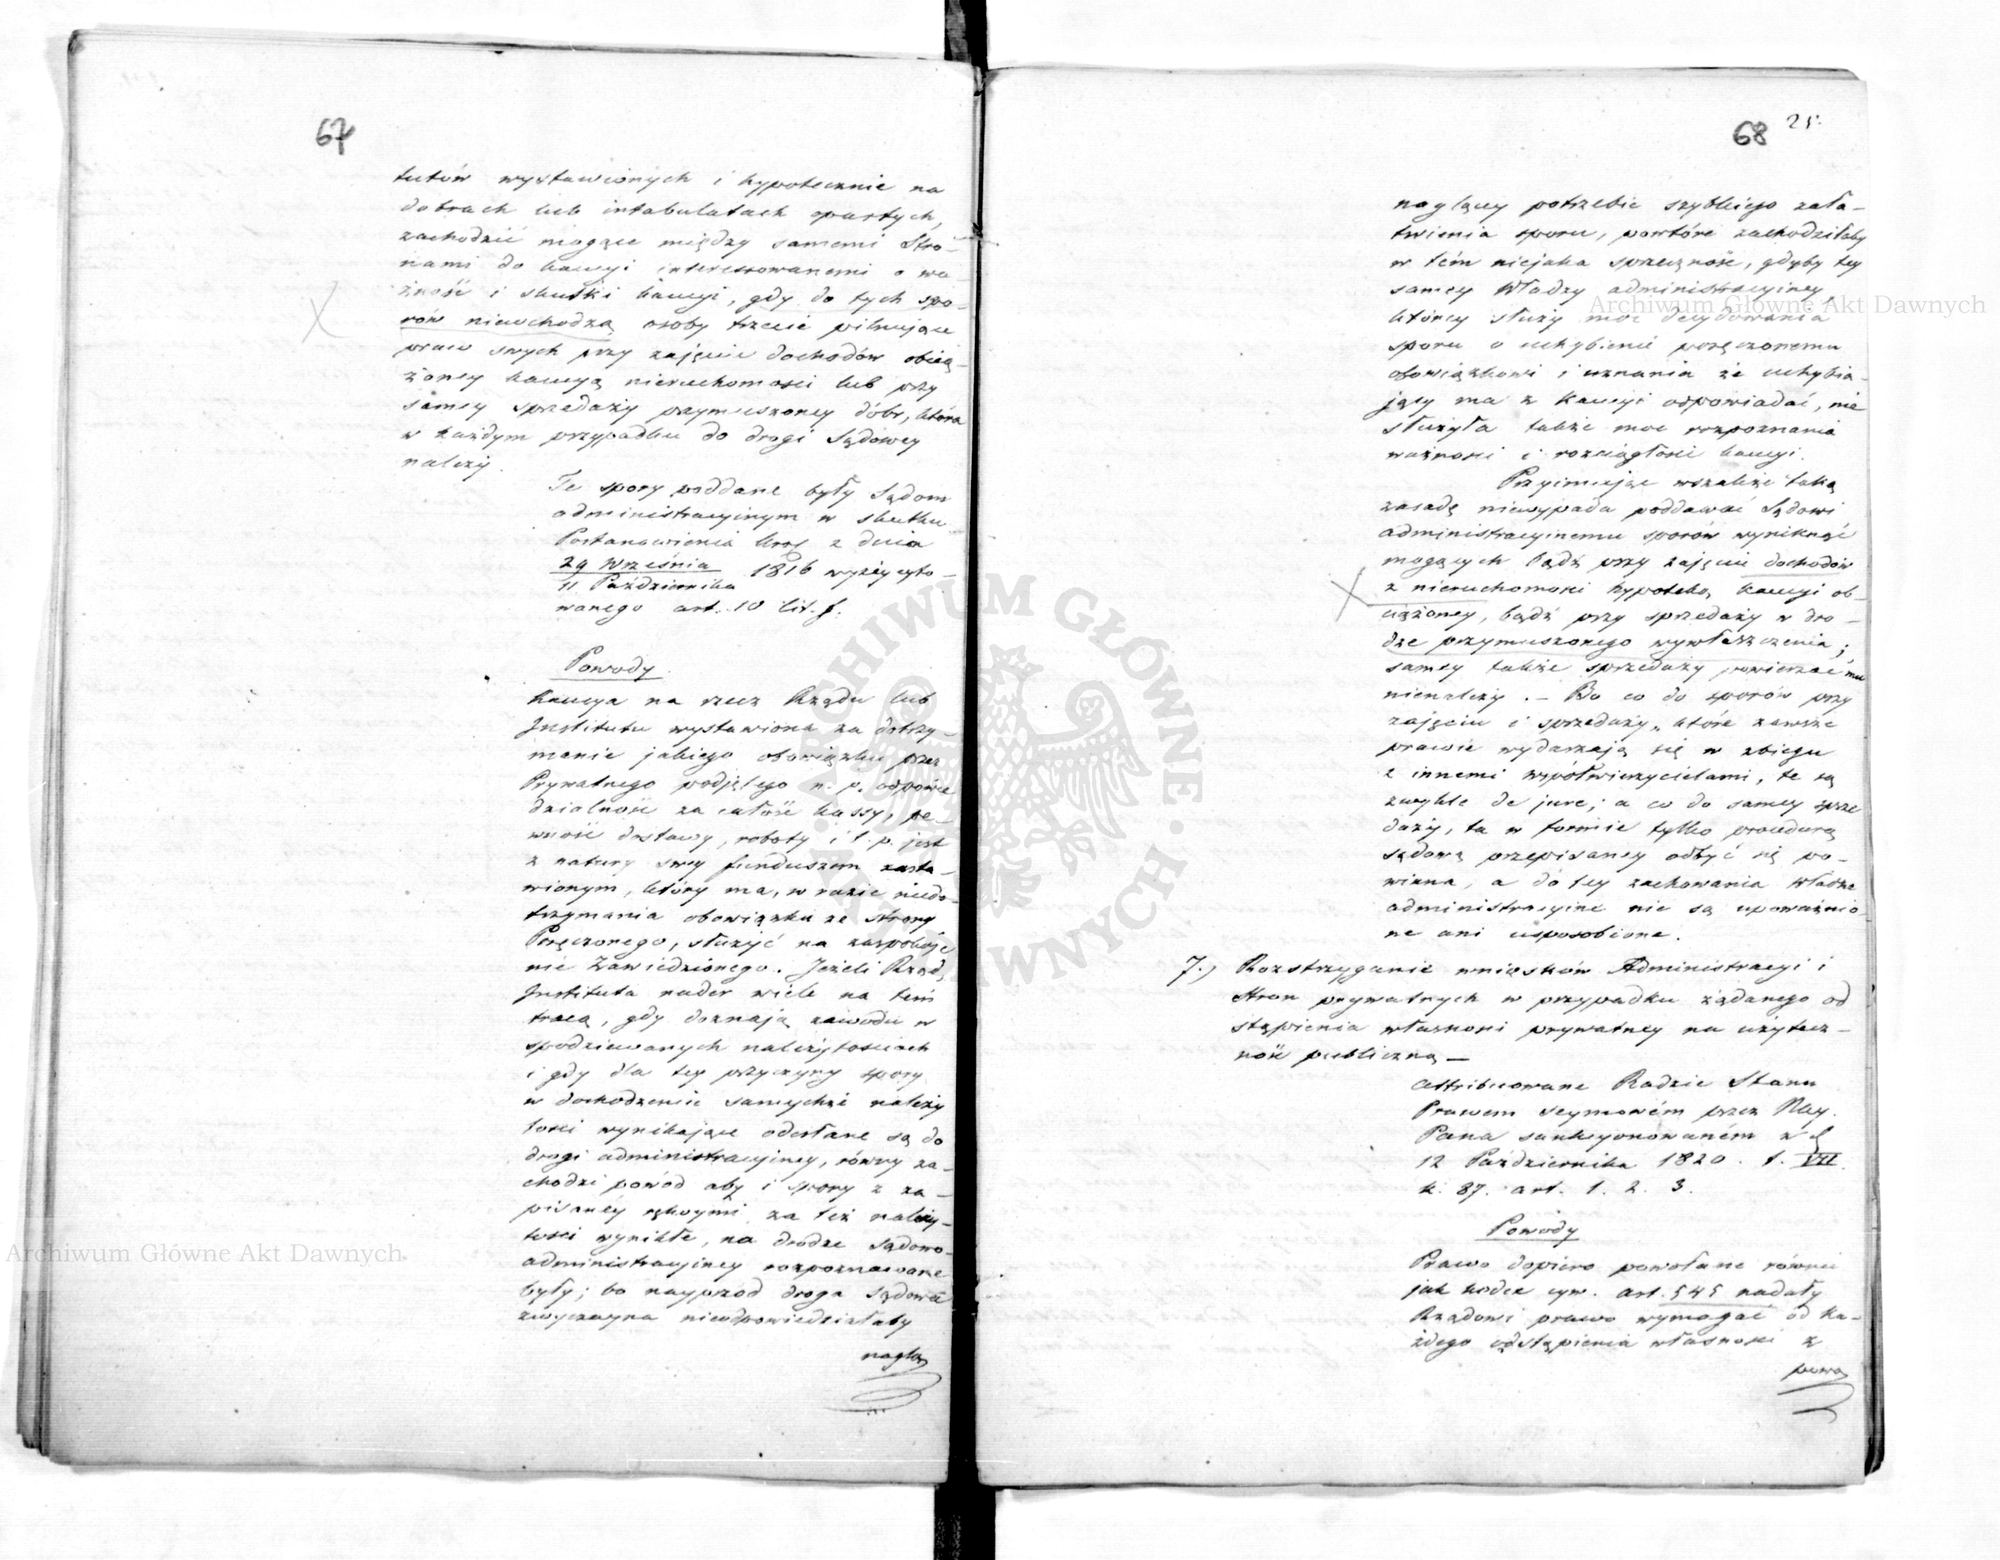 67
tutów wystawionych i hypotecznie na
dobrach lub intabulatach opartych,
zachodzić mogące między samemi Stro-
nami do kaucyi interessowanemi o wa-
żność i skutki kaucyi, gdy do tych spo-
rów niewchodzą osoby trzecie pilnujące
praw swych przy zajęciu dochodów obcią-
żoney kaucyą nieruchomości lub przy
samey sprzedaży przymuszoney dóbr, która
w każdym przypadku do drogi Sądowey
należy.
Te spory poddane były Sądom
administracyinym w skutku
Postanowienia Król z dnia
29 Września
11 Października 1816 wyżey cyto-
wanego art. 10 lit. f.
Powody
Kaucya na rzecz Rządu lub
Institutu wystawiona za dotrzy-
manie jakiego obowiązku przez
Prywatnego podjętego n. p. odpowie
dzialność za całość kassy, pe-
wność dostawy, roboty i t. p. jest
z natury swey funduszem zasta-
wionym, który ma, w razie niedo-
trzymania obowiązku ze strony
Poręczonego, służyć na zaspokoje
nie Zawiedzionego. Jeżeli Rząd,
Instituta nader wiele na tem
tracą, gdy doznają zawodu w
spodziewanych należytościach
i gdy dla tey przyczyny spory
w dochodzenie samychże należy
tości wynikające odesłane są do
drogi administracyiney, równy za-
chodzi powód aby i spory z za-
pisaney rękoymi za też należy-
tości wynikłe, na drodze Sądowo-
administracyiney rozpoznawane
były; bo nayprzód droga Sądowa
zwyczayna nieodpowiedziałaby
naglą
68 25.
naglącey potrzebie szybkiego zała-
twienia sporu, powtóre zachodziłaby
w tém niejaka sprzeczność, gdyby tey
samey Władzy administracyiney
którey służy moc decydowania
sporu o uchybienie poręczonemu
obowiązkowi i uznania że uchybia-
jący ma z Kaucyi odpowiadać, nie
służyła także moc rozpoznania
ważności i rozciągłości kaucyi.
Przyimując wszakże taką
zasadę niewypada poddawać Sądowi
administracyinemu sporów wyniknąć
mogących bądź przy zajęciu dochodów
z nieruchomości hypoteką kaucyi ob-
ciążoney, bądź przy sprzedaży w dro-
dze przymuszonego wywłaszczenia;
samey także sprzedaży powierzać mu
nienależy. – Bo co do sporów przy
zajęciu i sprzedaży, które zawsze
prawie wydarzają się w zbiegu
z innemi współwierzycielami, te są
zwykle de jure; a co do samey sprze
daży, ta w formie tylko procedurą
sądową przepisaney odbyć się po-
winna, a do tey zachowania Władze
administracyine nie są upoważnio-
ne ani usposobione.
7.) Rozstrzyganie wniosków Administracyi i
Stron prywatnych w przypadku żądanego od
stąpienia własności prywatney na użytecz-
ność publiczną —
attribuowane Radzie Stanu
Prawem seymowém przez Nay.
Pana sankcyonowaném z d
12 Października 1820. t. VII.
k. 87. art. 1. 2. 3.
Powody
Prawo dopiero powołane równie
jak kodex cyw. art. 545 nadały
Rządowi prawo wymagać od ka-
żdego odstąpienia własności z
powo
Archiwum Główne Akt Dawnych
Archiwum Główne Akt Dawnych
ARCHIWUM GŁÓWNE AKT DAWNYCH